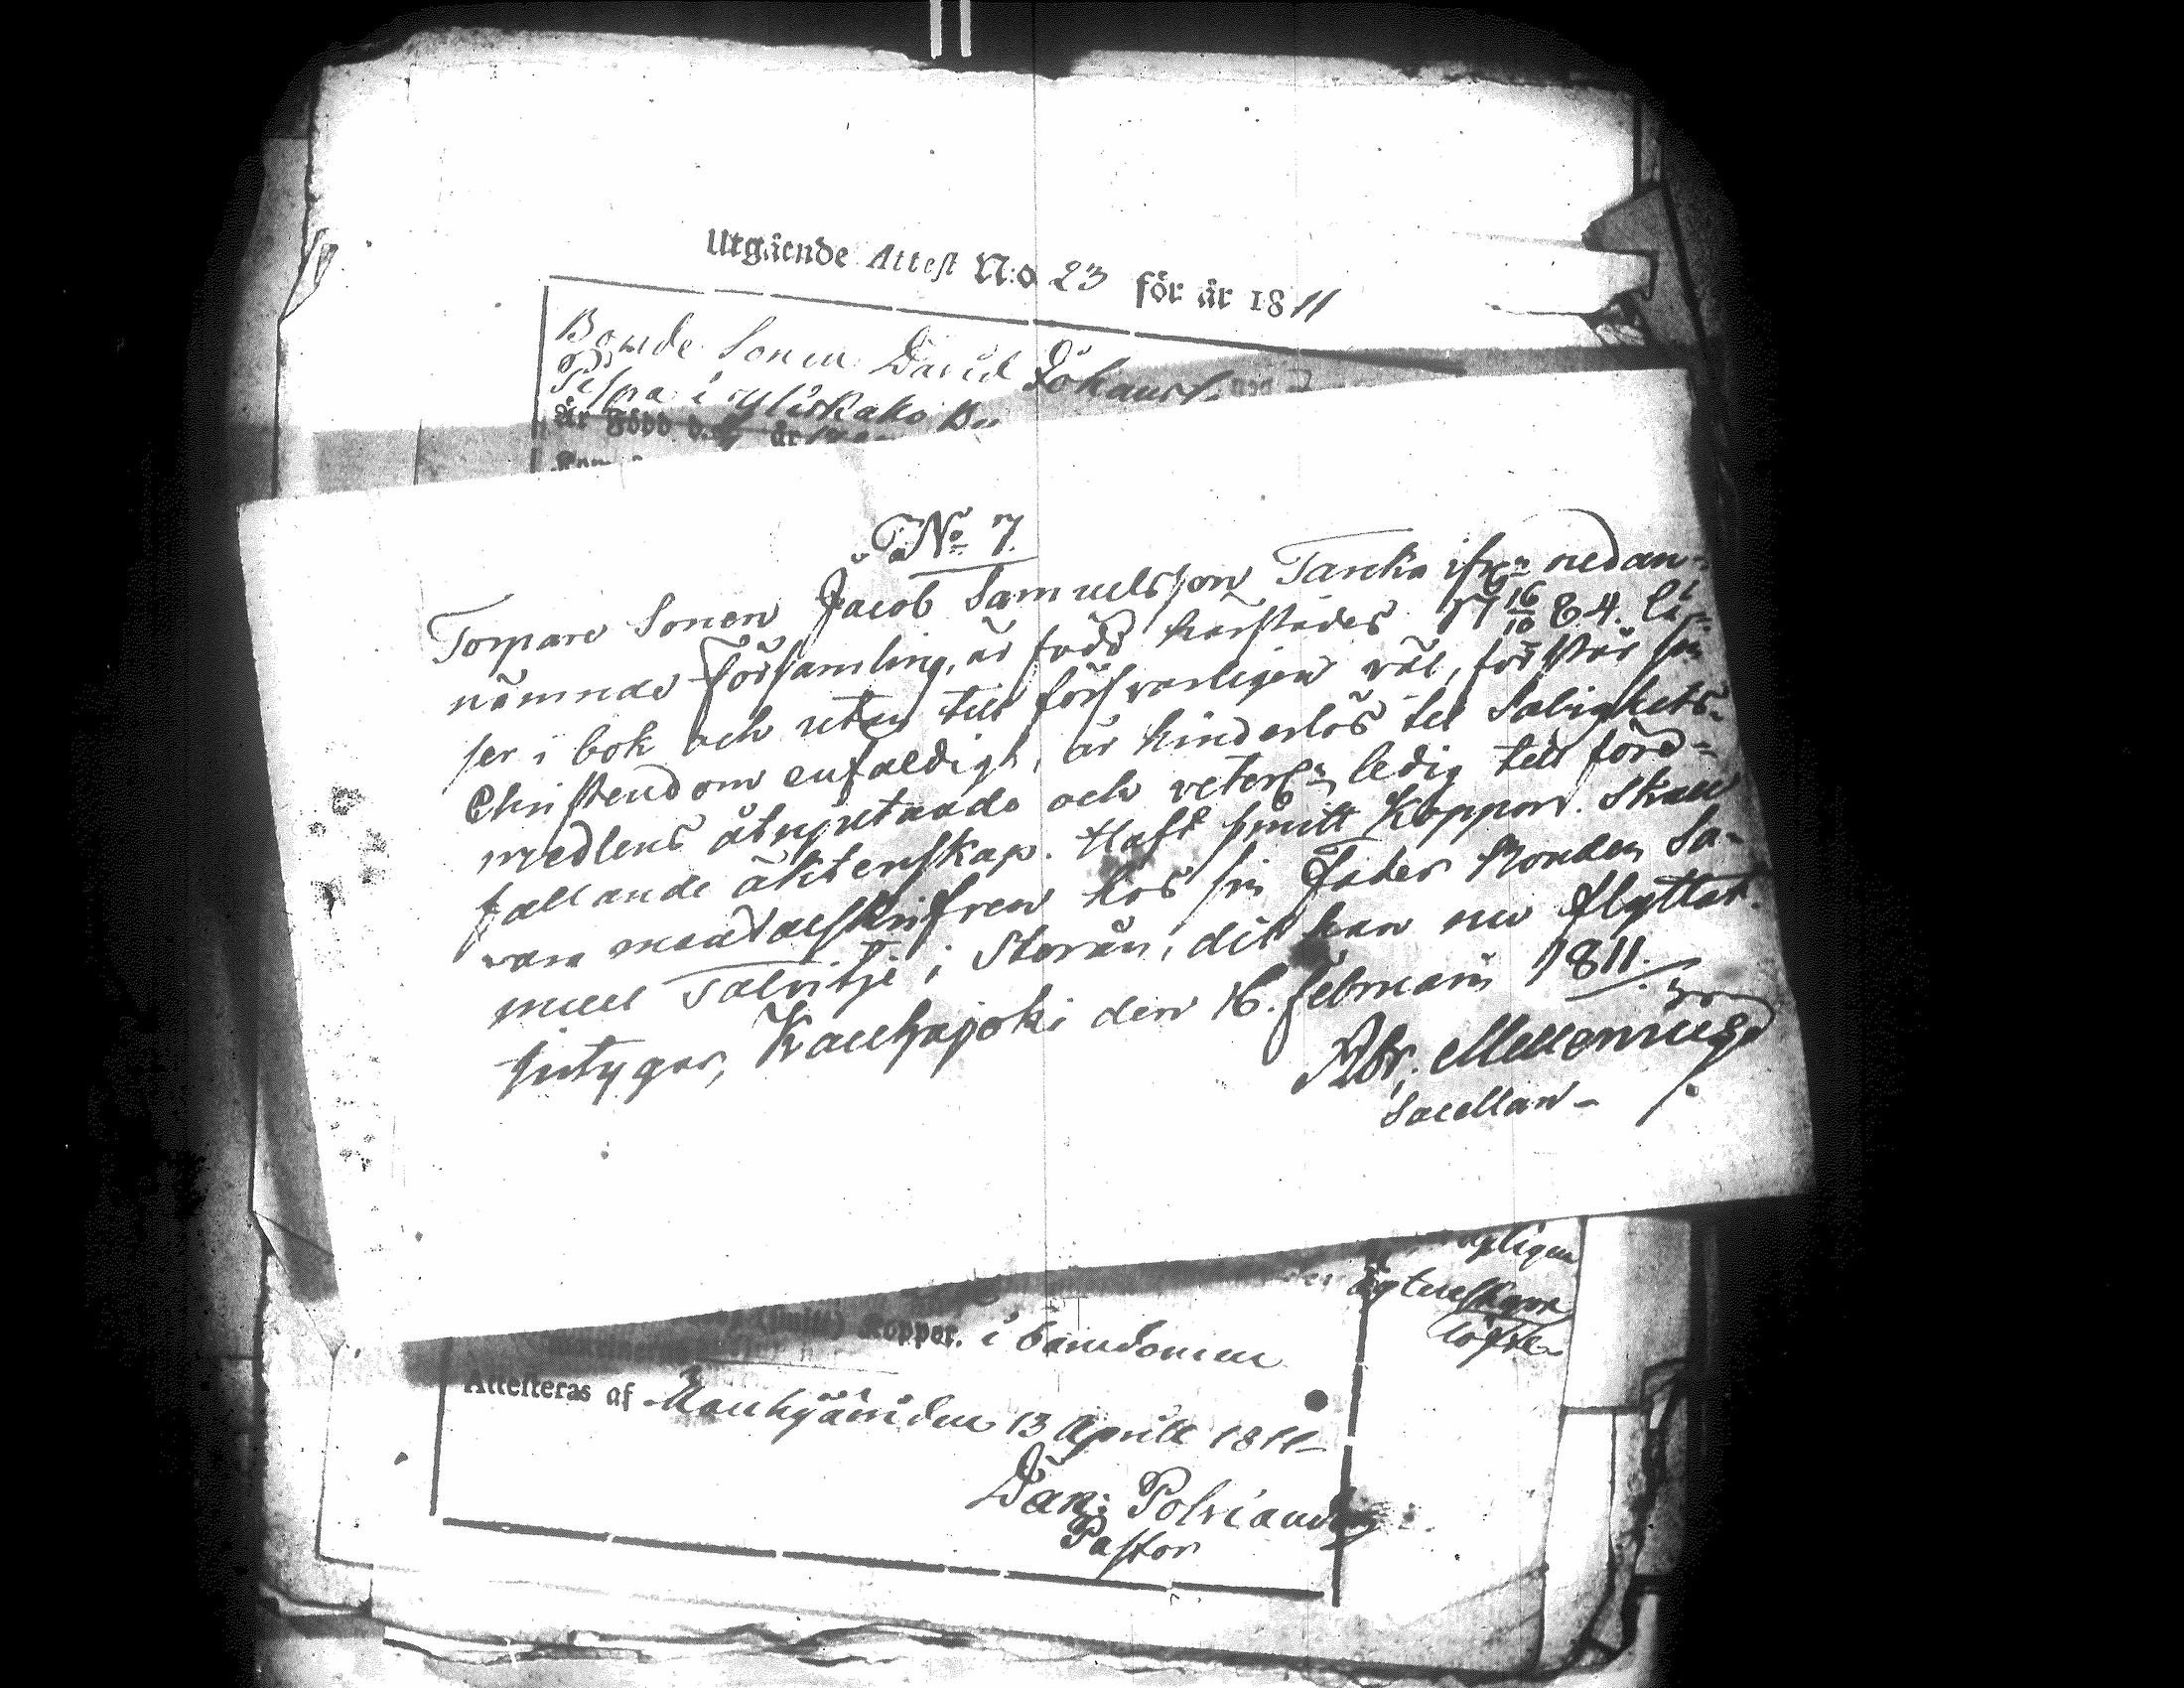 Utgående Attest N:o 23 för år 1811
Bonde Sonen David Johansf.
i Yliskako By
Är Född d. år
No 7.
Torpare Sonen Jacob Samuelsson Tanka ifrn nedan-
nämnde Församling, är född härstädes 17 16/10 84. lä-
ser i bok och utan till försvarligen väl, förstår sin
Christendom enfaldigt, är hinderlös til Salighets-
medlens åtnjutande och veterl:n ledig till före-
fallande äktenskap. Haft smitt Koppor. Skall
vara mantalskrifven hos sin Fader Bonden Sa-
muel Talvitje i Storån, dit han nu flyttat.
intygar, Kauhajoki den 16. februarii 1811.
Abr. Mellenius
Sacellan -
ägtenskaps
löfte
(smitt) Koppor. i barndomen
Attesteras af Kauhajärvi den 13 Aprill 1811
Dan: Polviander
Pastor